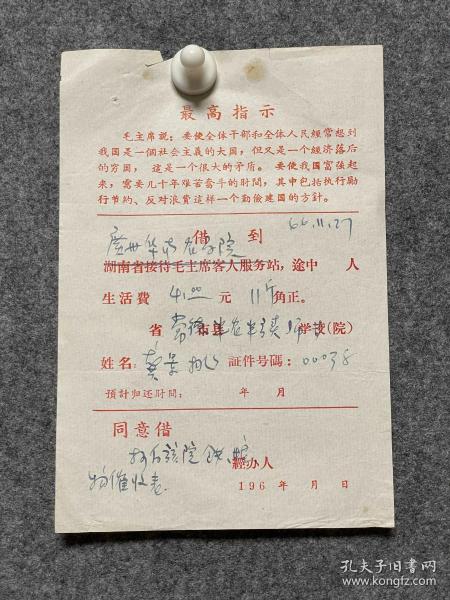 最高指示
毛主席說：要使全体干部和全体人民經常想到
我国是一個社会主義的大国，但又是一个經济落后
的穷国，這是一个很大的矛盾。要使我国富強起
来，需要几十年艰苦奮斗的时間，其中包括执行励
行节約、反对浪費這样一个勤儉建国的方針。
66.11.27
借到
廣州华南农学院
湖南省接待毛主席客人服务站，途中 人
生活費 4.00 元 11斤 角正。
省 常德 市县 半农半讀师 学校（院）
姓名： 証件号碼：00038
預計归还时間： 年 月
同意借
經办人
物催收表
196 年 月 日
孔夫子旧书网
www.kongfz.com